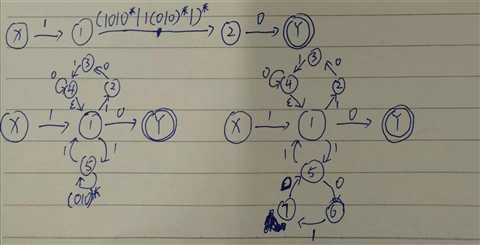 X 1 1 (1010*|1(010)*1)* 2 0 Y
3 3
0 1 0 0 1 0
4 2 4 2
ε 1 ε 1
X 1 1 0 Y X 1 1 0 Y
1 1 1 1
5 5
(010)* 0 0
7 6
1